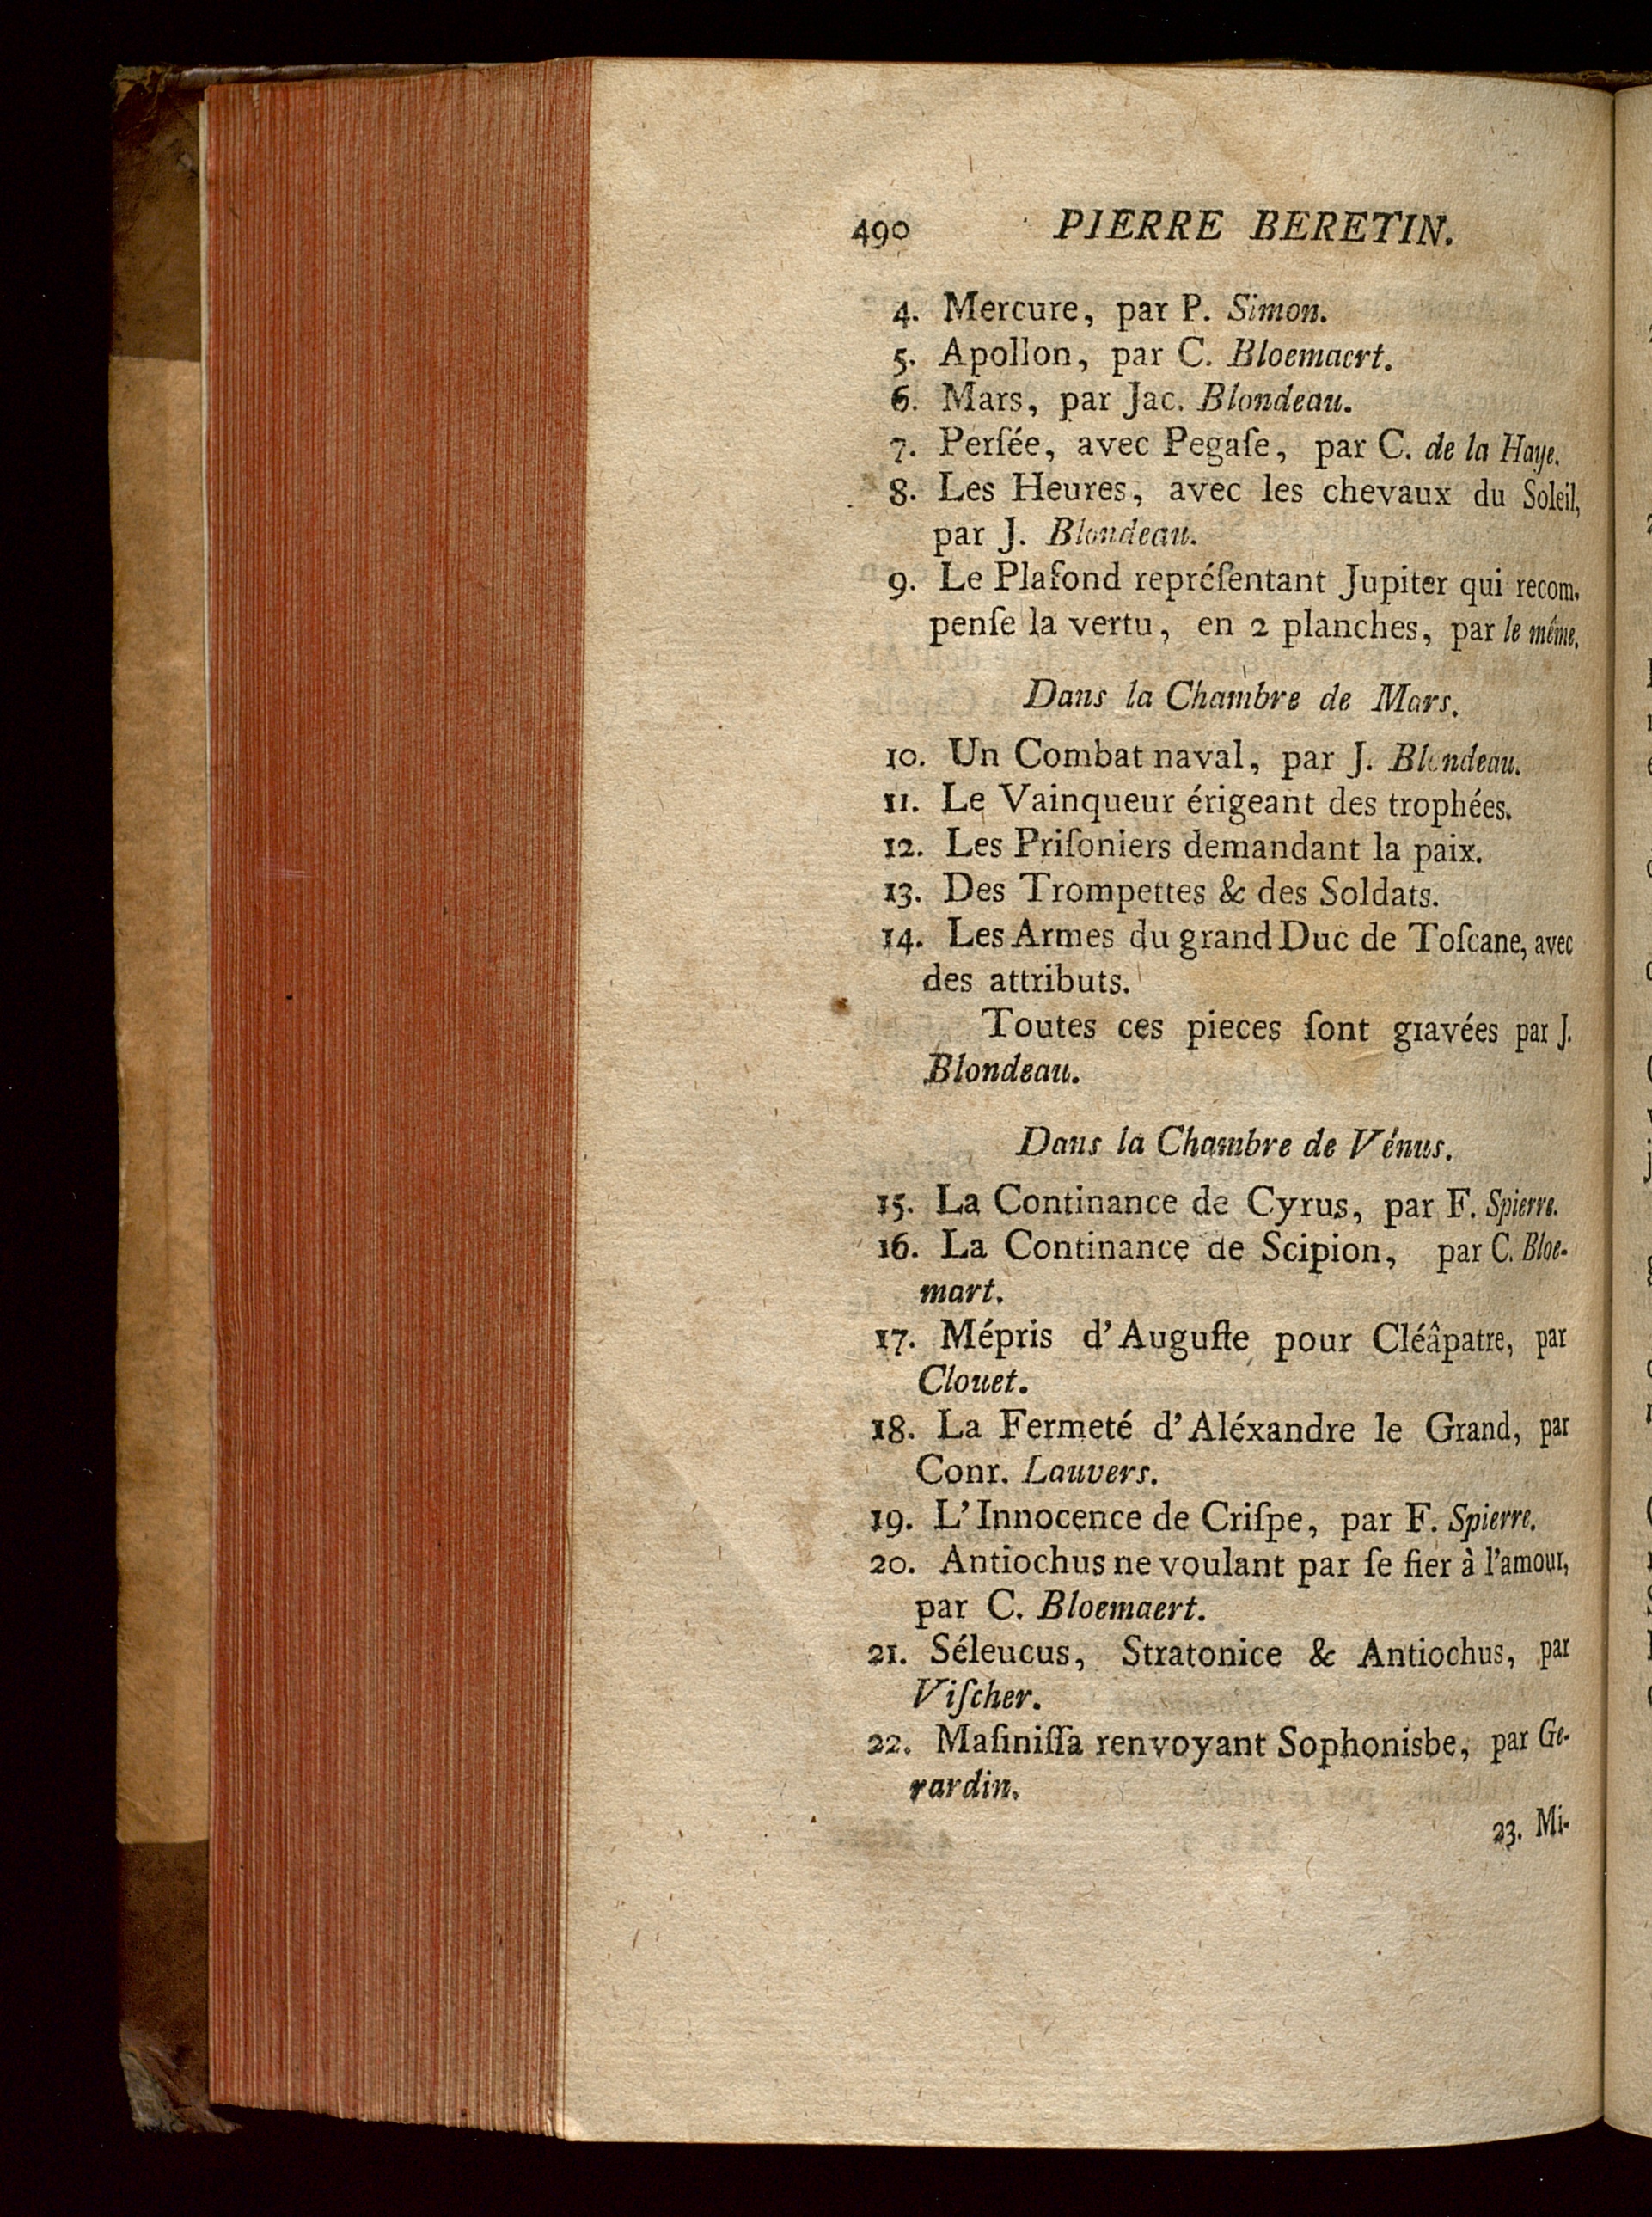 490 PIERRE BERETIN.
4. Mercure, par P. Simon.
5. Apollon, par C. Bloemaert.
6. Mars, par Jac. Blondeau.
7. Perſée, avec Pegaſe, par C. de la Haye.
8. Les Heures, avec les chevaux du Soleil,
par J. Blondeau.
9. Le Plafond repréſentant Jupiter qui recom-
penſe la vertu, en 2 planches, par le même.
Dans la Chambre de Mars.
10. Un Combat naval, par J. Blondeau.
11. Le Vainqueur érigeant des trophées.
12. Les Priſoniers demandant la paix.
13. Des Trompettes & des Soldats.
14. Les Armes du grand Duc de Toſcane, avec
des attributs.
Toutes ces pieces ſont gravées par J.
Blondeau.
Dans la Chambre de Vénus.
15. La Continance de Cyrus, par F. Spierre.
16. La Continance de Scipion, par C. Bloe-
mart.
17. Mépris d'Auguſte pour Cléâpatre, par
Clouet.
18. La Fermeté d'Aléxandre le Grand, par
Conr. Lauvers.
19. L'Innocence de Criſpe, par F. Spierre.
20. Antiochus ne voulant par ſe fier à l'amour,
par C. Bloemaert.
21. Séleucus, Stratonice & Antiochus, par
Viſcher.
22. Maſiniſſa renvoyant Sophonisbe, par Ge-
rardin.
23. Mi-